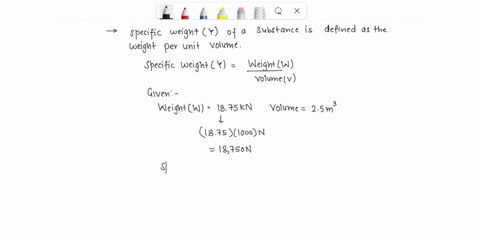 → Specific weight (γ) of a substance is defined as the
weight per unit volume.
Specific Weight (γ) = Weight (W) / volume (v)
Given:-
Weight (W) = 18.75 KN Volume = 2.5 m³
↓
(18.75)(1000) N
= 18,750N
S